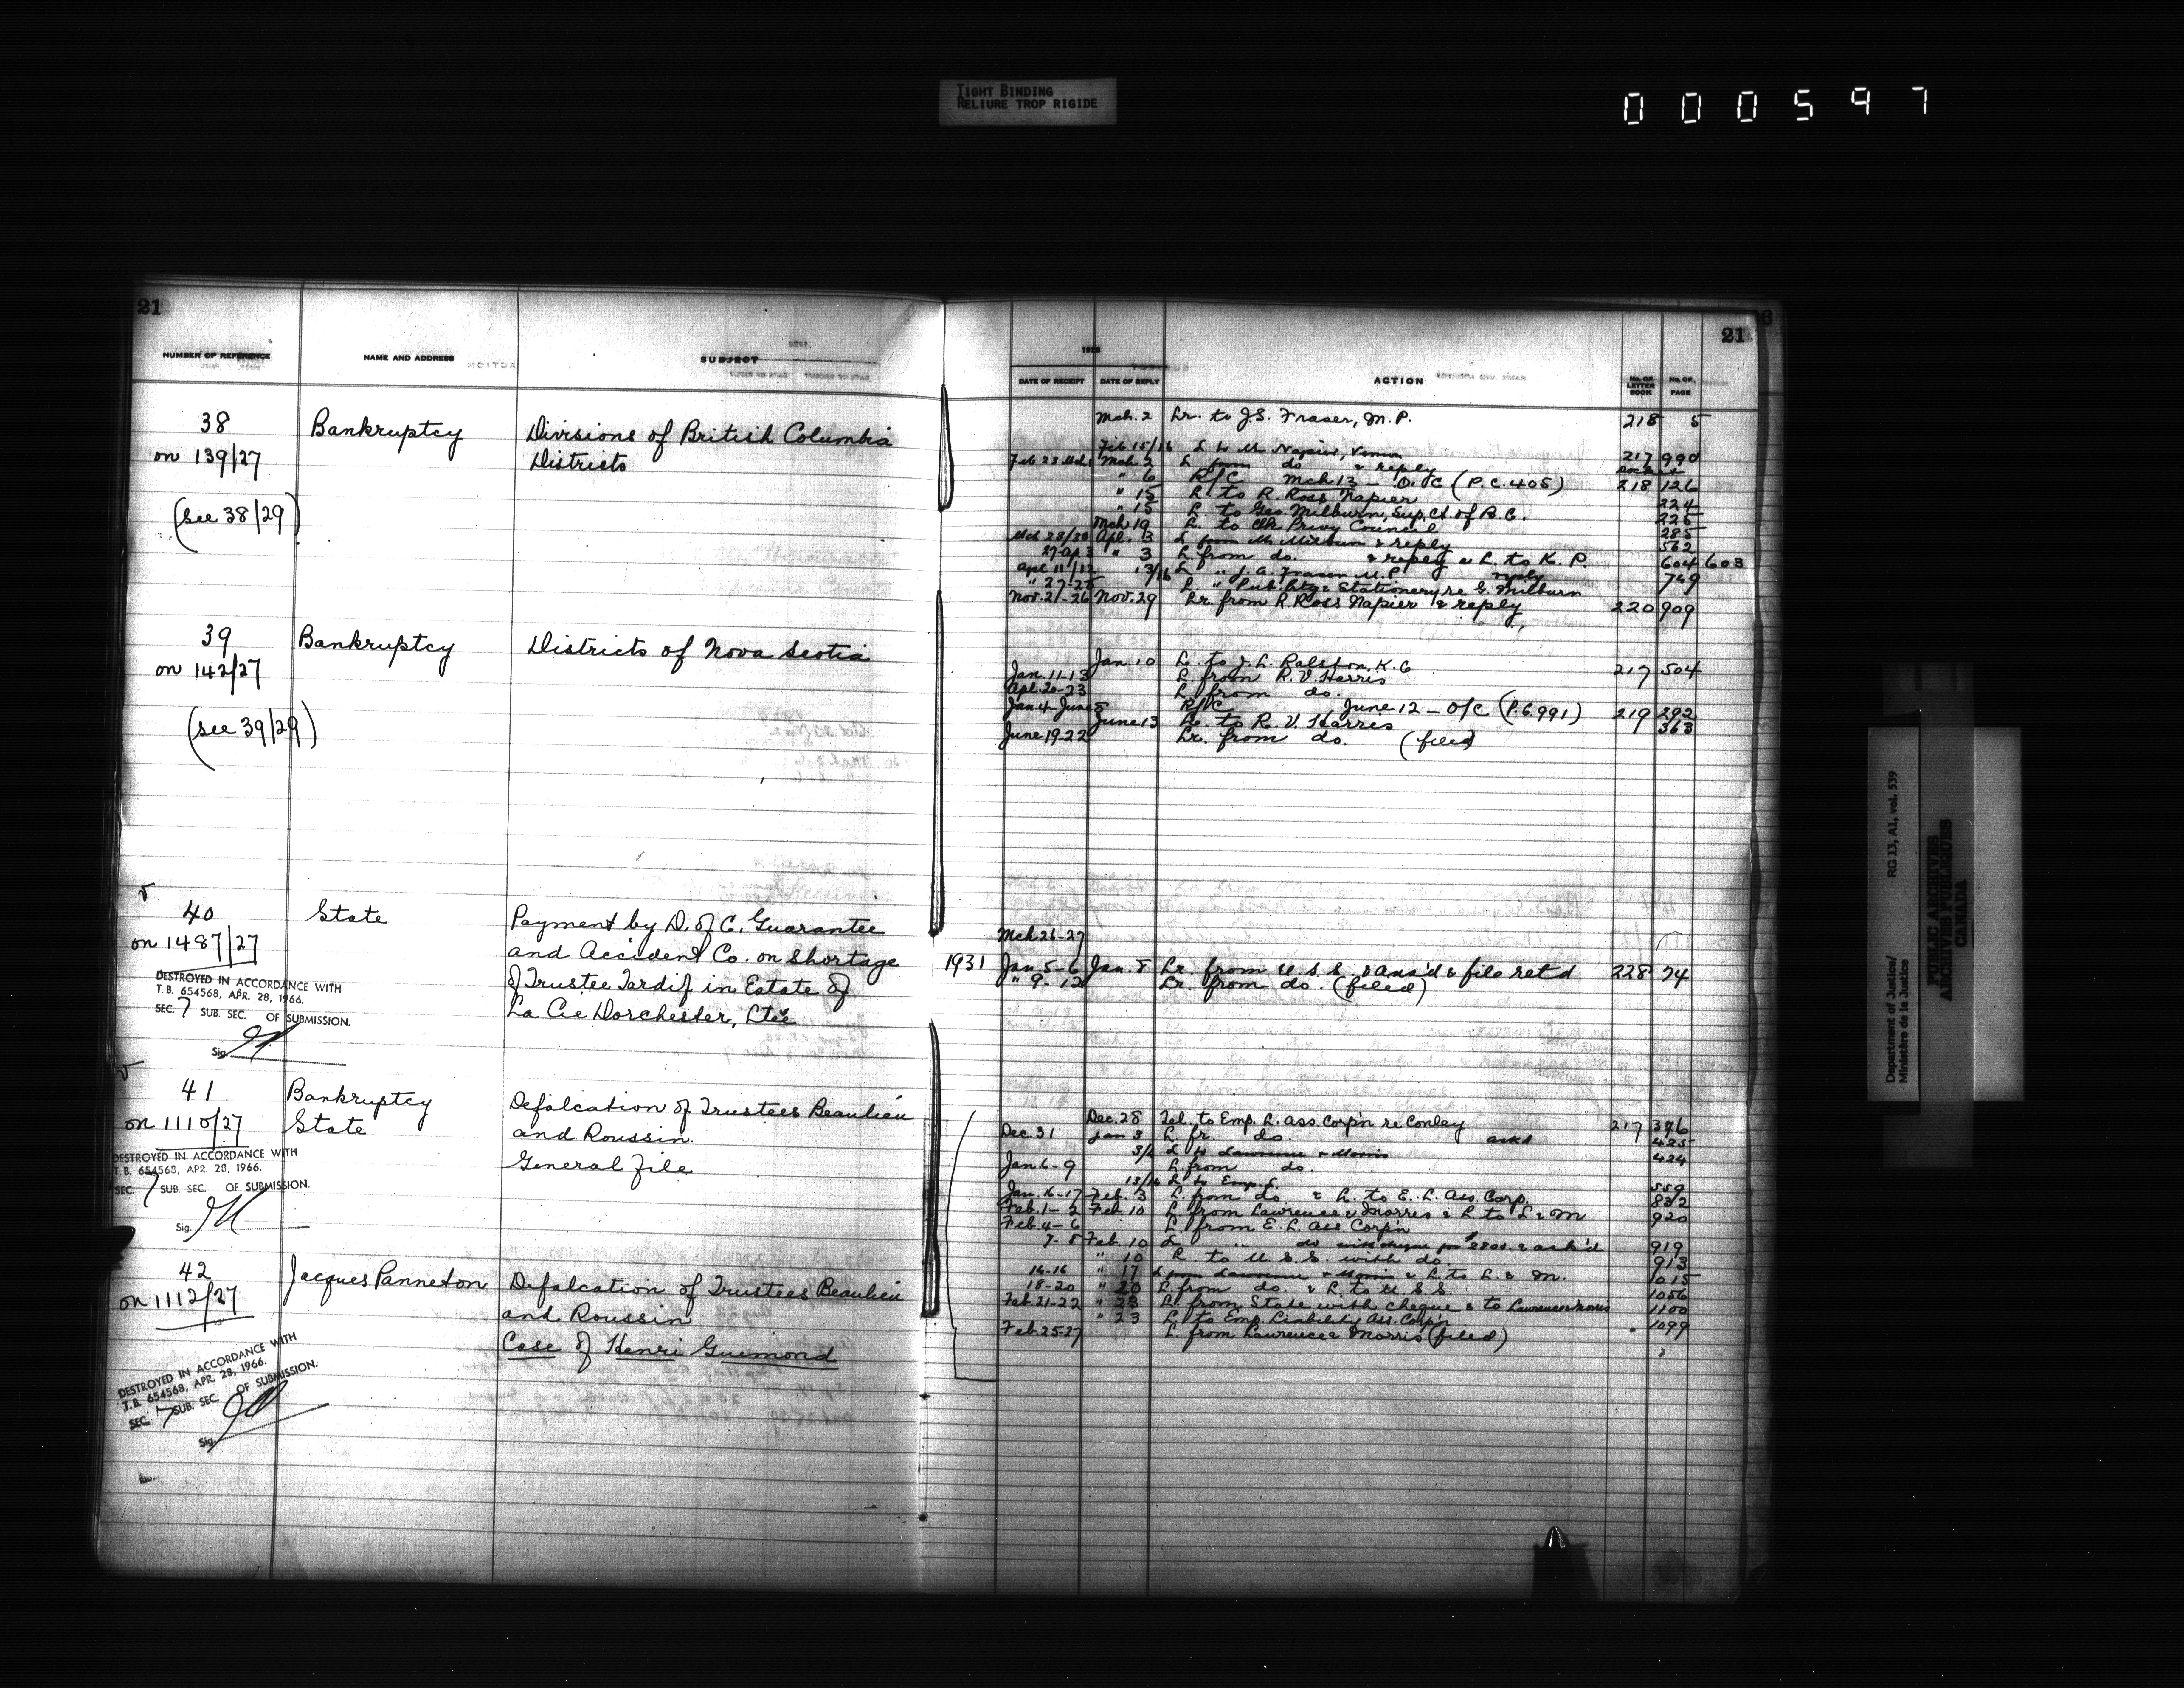 TIGHT BINDING
RELIURE TROP RIGIDE
000597
21
NUMBER OF REFERENCE NAME AND ADDRESS SUBJECT
38 Bankruptcy Divisions of British Columbia
on 139/27 Districts
(see 38/29)
39 Bankruptcy Districts of Nova Scotia
on 142/27
(see 39/29)
40 State Payment by D. of C. Guarantee
on 1487/27 and Accident Co. on Shortage
of Trustee Tardif in Estate of
La Cie Dorchester, Ltée
DESTROYED IN ACCORDANCE WITH
T.B. 654568, APR. 28, 1966.
SEC. 7 SUB. SEC. OF SUBMISSION.
Sig.
41 Bankruptcy Defalcation of Trustees Beaulieu
on 1110/27 State and Roussin.
General File
DESTROYED IN ACCORDANCE WITH
T.B. 654568, APR. 28, 1966.
SEC. 7 SUB. SEC. OF SUBMISSION.
Sig.
42 Jacques Panneton Defalcation of Trustees Beaulieu
on 1112/27 and Roussin
Case of Henri Guimond
DESTROYED IN ACCORDANCE WITH
T.B. 654568, APR. 28, 1966.
SEC. 7 SUB. SEC. OF SUBMISSION.
Sig.
21
1928
DATE OF RECEIPT DATE OF REPLY ACTION No. OF LETTER BOOK No. OF PAGE
Mch. 2 Lr. to J.S. Fraser, M.P. 218 5
Feb 15/16 L to Napier, 217 990
Mch. 2 L from do & reply
" 6 R/C Mch 13 - O/C (P.C. 405) 218 126
" 15 L. to R. Ross Napier 224
" 15 L. to Geo. Milburn, Sup. Ct. of B.C. 225
Mch 19 L. to Clk Privy Council 285
Mch 28/30 Apl. 3 L from Milburn & reply 562
27-Ap 3 " 3 L. from do. & reply & L. to K. P. 604 603
Apl 11/12 13/16 L " J. A. Fraser M.P. reply 749
" 27-28 L. " Pub. Ptg & Stationery re G. Milburn
Nov. 21-26 Nov. 29 Lr. from R. Ross Napier & reply 220 909
Jan. 10 L. to J. L. Ralston, K.C 217 504
Jan. 11-13 L. from R. V. Harris
Apl. 20-23 L. from do.
R/C June 12 - O/C (P.C. 991) 219 292
June 13 Lr. to R. V. Harris 363
June 19-22 Lr. from do. (filed)
Mch 26-27
1931 Jan. 5-6 Jan. 8 Lr. from U.S.S. & ans'd & file ret'd 228 74
" 9-12 Lr. from do. (filed)
Dec. 28 Tel. to Emp. L. Ass Corp'n re Conley 217 376
Dec. 31 Jan 3 L. fr. do. 425
3/4 L to Lawrence & Morris 424
Jan. 6-9 L. from do.
13/16 L to Emp. L. 559
Jan. 16-17 Feb. 3 L. from do. & L. to E. L. Ass. Corp. 832
Feb. 1-2 Feb. 10 L. from Lawrence & Morris & L. to L & M 920
Feb. 4-6 L. from E. L. Ass. Corp'n
7-8 Feb. 10 L " do with cheque for & ack'd 919
" 10 L. to U.S.S. with do. 913
14-16 " 17 L from Lawrence & Morris & L. to L. & M. 1015
18-20 " 20 L. from do. & L. to U.S.S. 1056
Feb. 21-22 " 23 L. from State with cheque & to Lawrence & Morris 1100
" 23 L. to Emp. Liability Ass. Corp'n 1099
Feb. 25-27 L. from Lawrence & Morris (filed)
Department of Justice/ RG 13, A1, vol. 539
Ministère de la Justice
PUBLIC ARCHIVES
ARCHIVES PUBLIQUES
CANADA